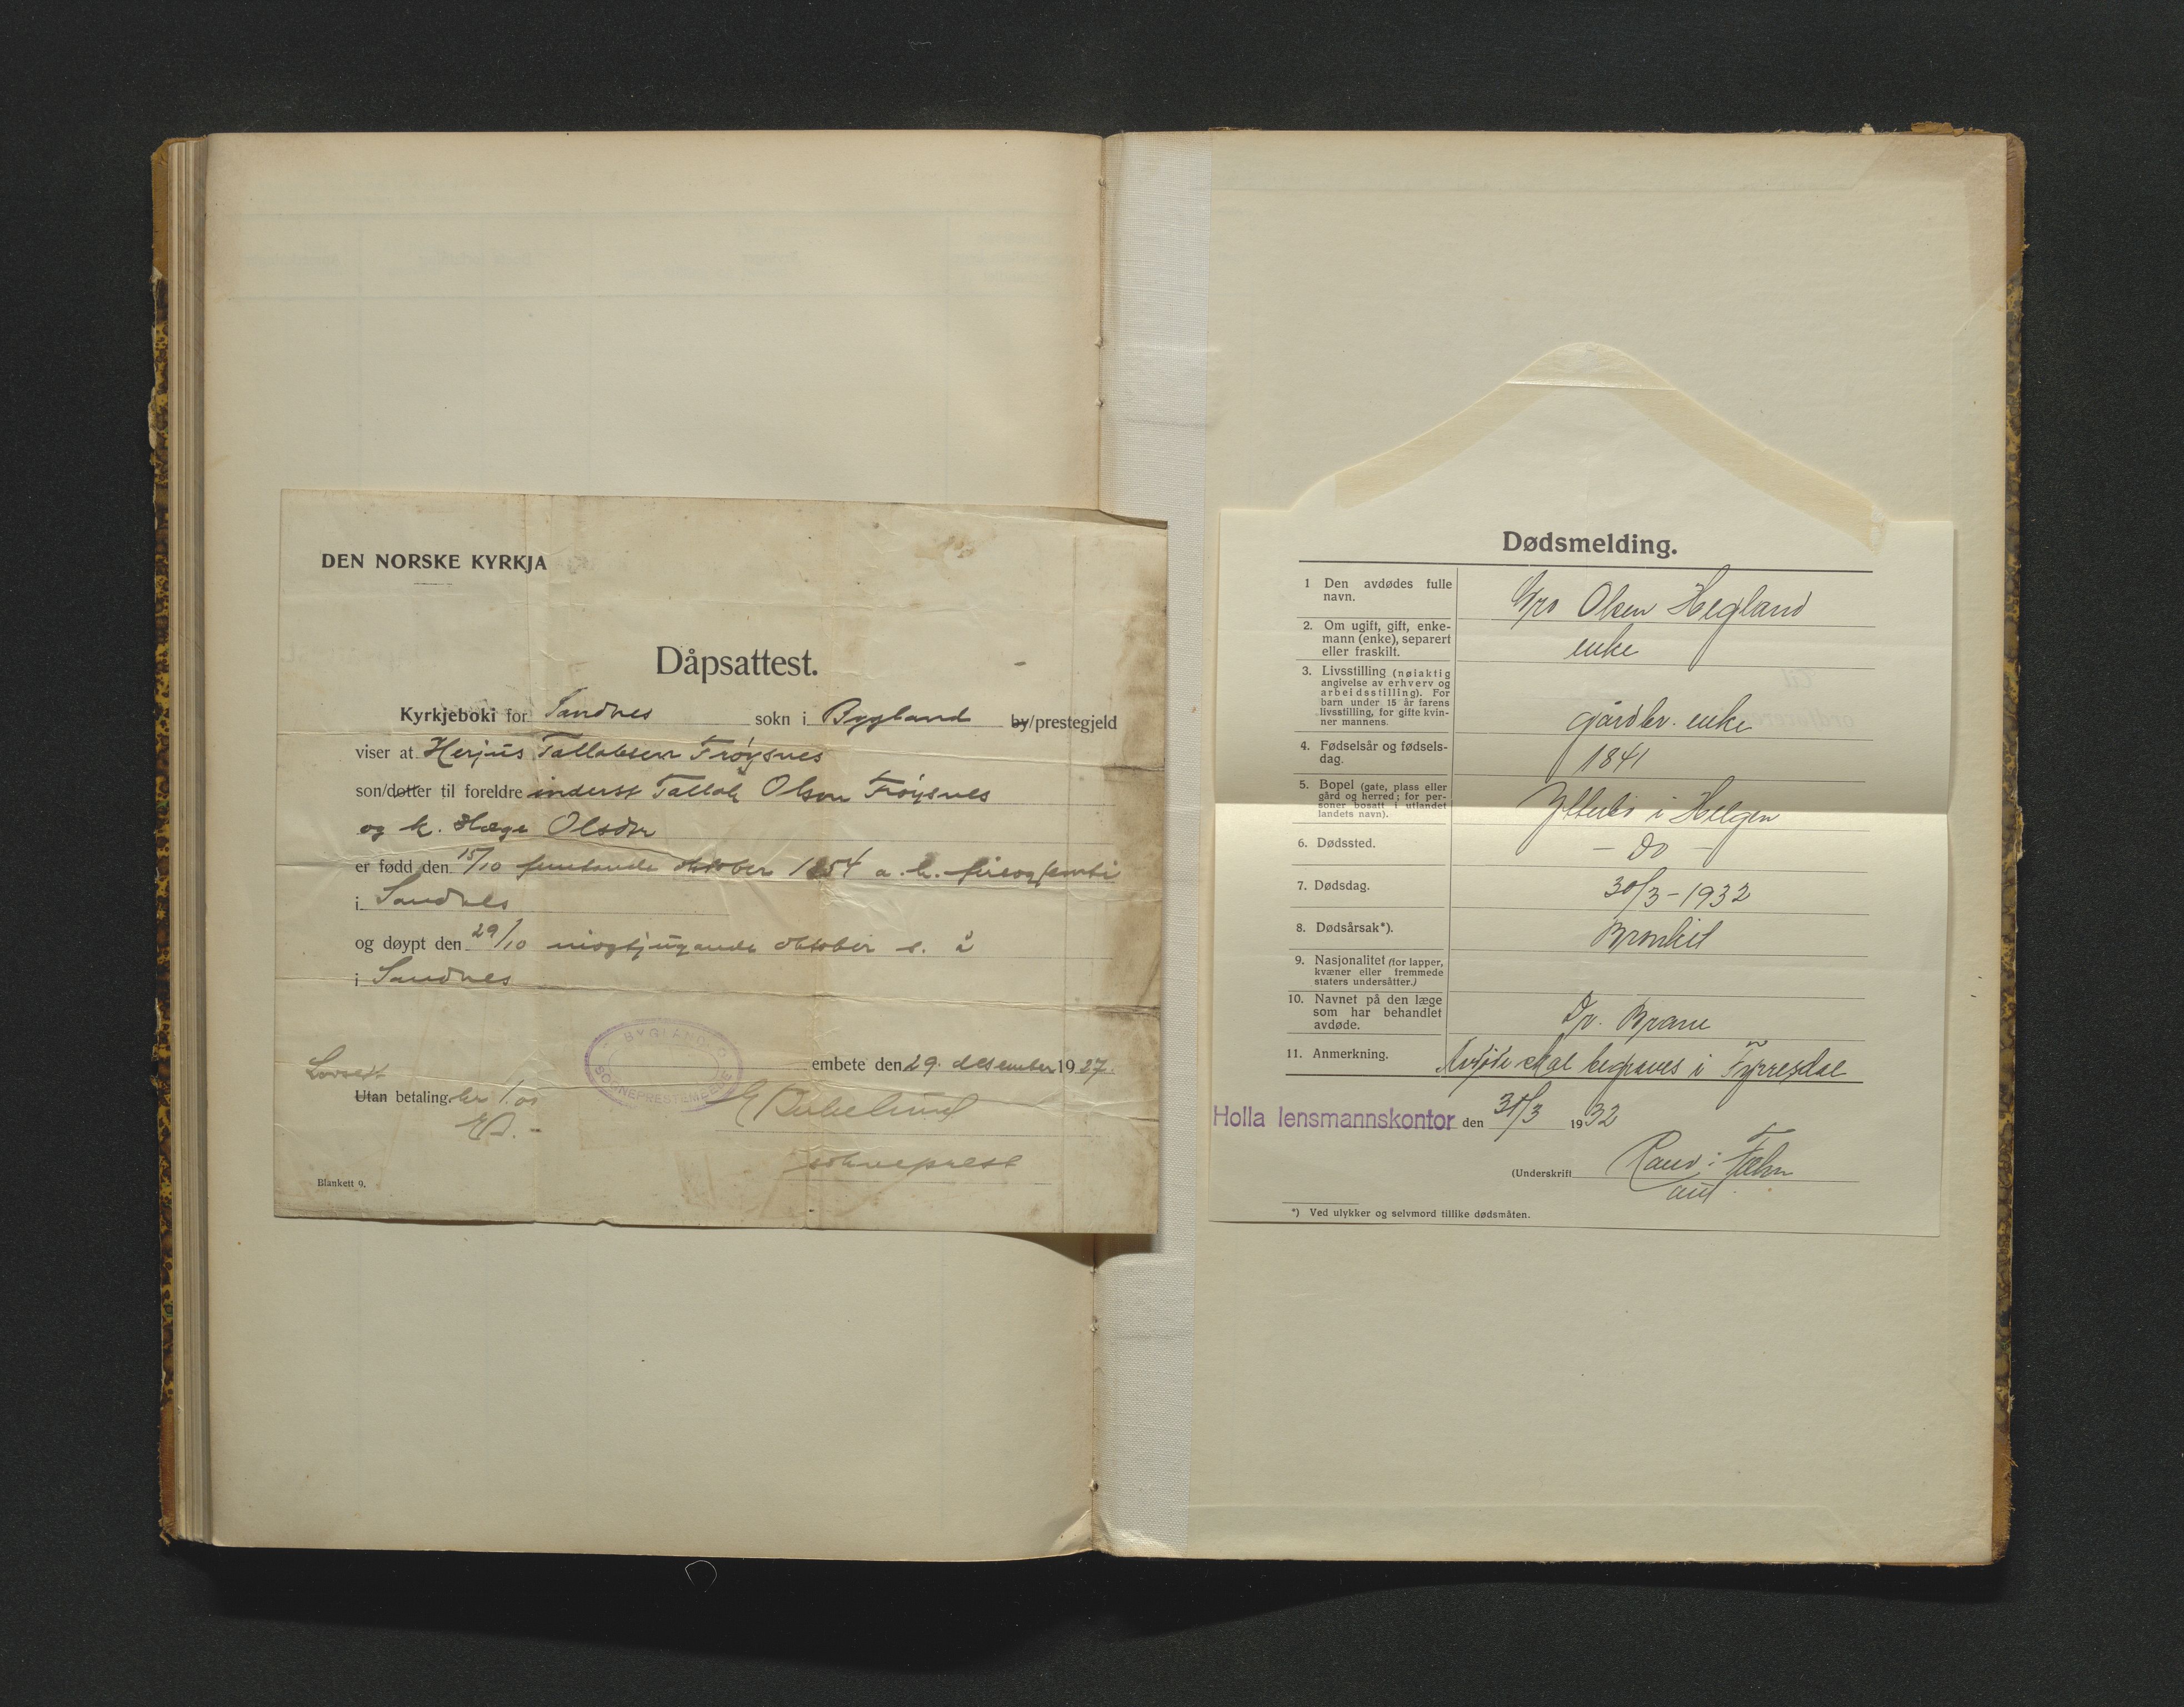 DEN NORSKE KYRKJA
Dåpsattest.
Kyrkjeboki for Sandnes sokn i Bygland by/prestegjeld
viser at Herjus Tallaksen Frøysnes
son/dotter til foreldre inderst Tallak Olsen Frøysnes
og k. Hæge Olsdtr
er fødd den 15/10 femtande oktober 1854 a.h. fireogfemti
i Sandnes
og døypt den 29/10 niogtjugande oktober s. å
i Sandnes
BYGLAND
SOKNEPRESTEMBETE
embete den 29. desember 1937.
Lovsett
Utan betaling. kr 1.00
EB. -
E Birkelund
sokneprest
Blankett 9.
Dødsmelding.
1 Den avdødes fulle navn. Gro Olsen Hegland
2. Om ugift, gift, enkemann (enke), separert eller fraskilt. enke
3. Livsstilling (nøiaktig angivelse av erhverv og arbeidsstilling). For barn under 15 år farens livsstilling, for gifte kvinner mannens. gårdbr. enke
4. Fødselsår og fødselsdag. 1841
5. Bopel (gate, plass eller gård og herred; for personer bosatt i utlandet landets navn). i Helgen
6. Dødssted. – Do –
7. Dødsdag. 30/3 - 1932
8. Dødsårsak*). Bronkit
9. Nasjonalitet (for lapper, kvæner eller fremmede staters undersåtter.)
10. Navnet på den læge som har behandlet avdøde. Dr.
11. Anmerkning. Avdøde skal begraves i Fyresdal
Holla lensmannskontor den 31/3 1932
(Underskrift
*) Ved ulykker og selvmord tillike dødsmåten.